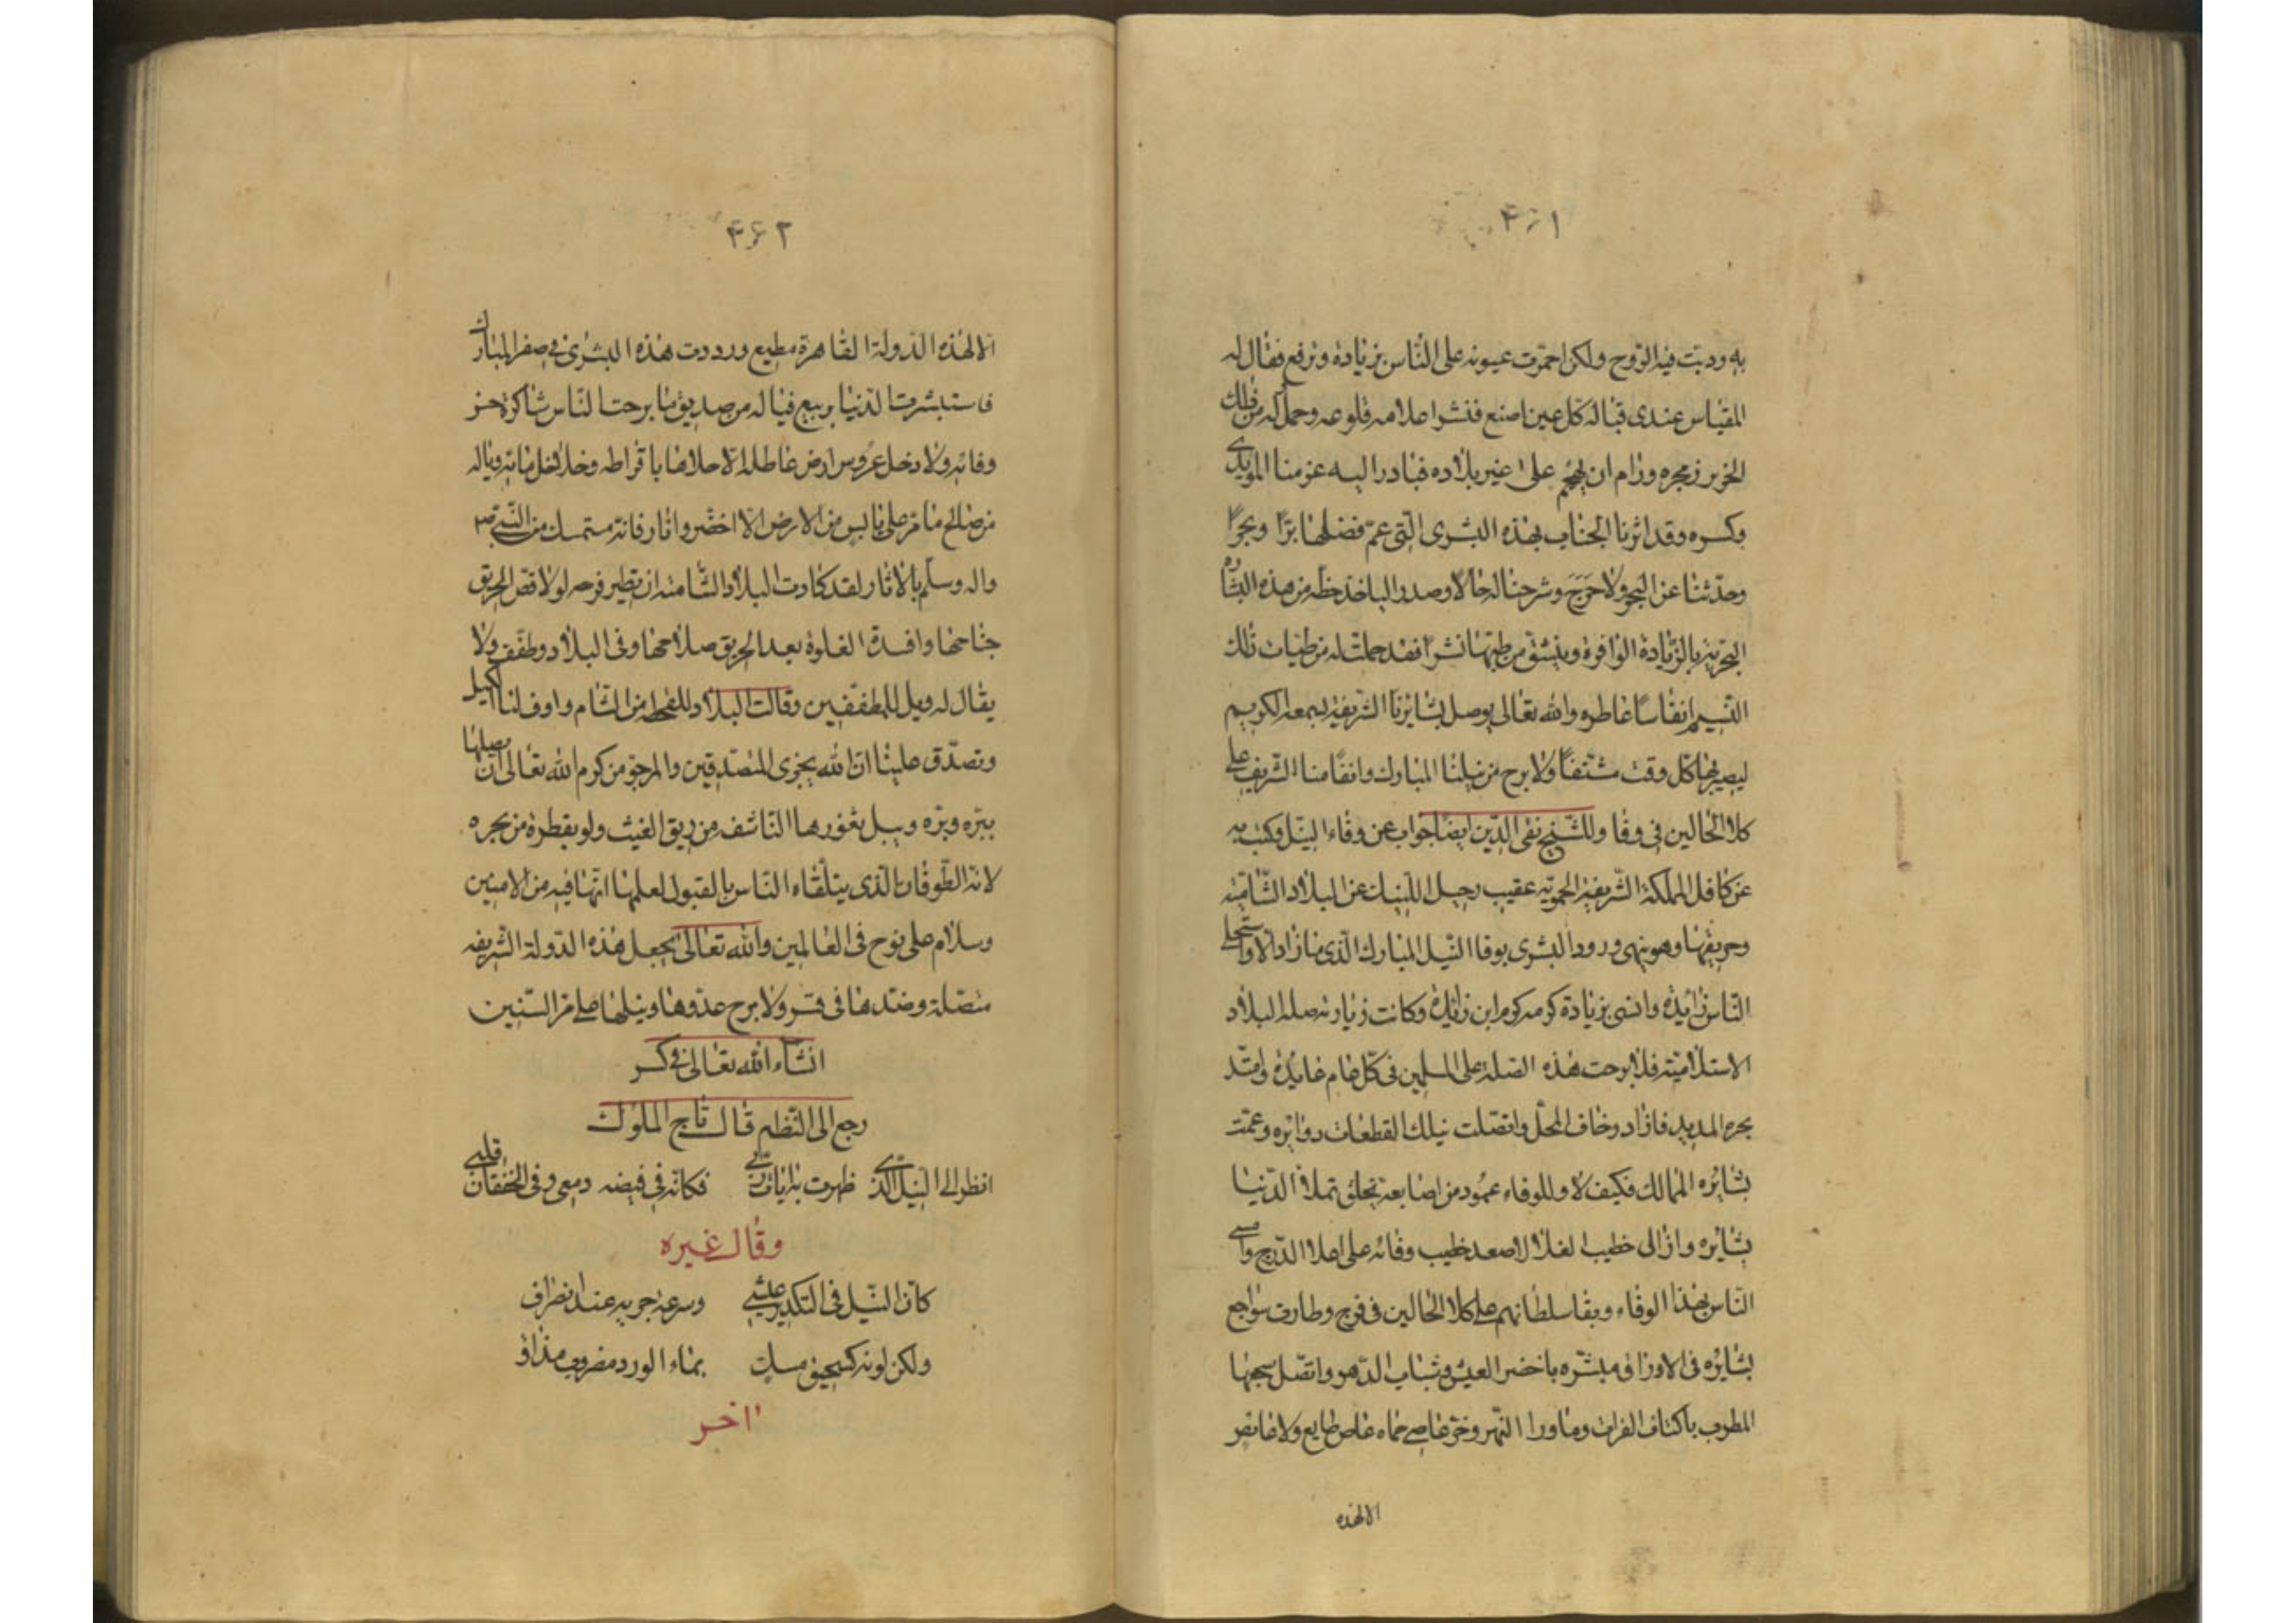 ۴۶۱
به ودبت فيه الروح ولكن احمرت عيونه على الناس بزيادة وترفع فقال له
المقياس عندى قباله كل عين اصبع فنشر اعلامه قلوعه وحمل له من ذلك
الخرير زمجره ورام ان يهجم على غير بلاده فبادر اليه عزمنا المويدى
وكسره وقد اثرنا الجناب بهذه البشرى التى عم فضلها برا وبحرا
وحدثنا عن البحر ولا حرج وشرحنا له حالا وصدرا لياخذ حظه من هذه البشاره
البحريه بالزيادة الوافرة وينشق من طيها نشرا فقد حملت له من طيبات ذلك
النسيم انفاسا عاطره والله تعالى يوصل بشايرنا الشريفة لسمعه الكريم
ليصير بها كل وقت مشنفا ولا برح من نيلنا المبارك وانعامنا الشريف على
كلا الحالين فى وفا وللشيخ تقى الدين ايضا جواب عن وفاء النيل وكتب به
عن كافل المملكة الشريفة الحمويه عقيب رحيل اللنك عن البلاد الشامية
وحريقها وهو ينهى ورود البشرى بوفا النيل المبارك الذى ما زاد الا واستحلى
الناس زايده وانسى بزيادة كرمه كرم ابن زايدة وكانت زيارته صلة البلاد
الاسلامية فلا برحت هذه الصلة على المسلمين فى كل عام عايدة وامتد
بحره المديد فازاد وخاف المحل واتصلت بتلك القطعات دوايره وعمت
بشايره الممالك فكيف لا وللوفاء عمود من اصابعه تخلق تملأ الدنيا
بشايره واذا لى خطيب الغلا لا صعد خطيب وفائه على اعلا الدرج وامسى
الناس بهذا الوفاء وبقا سلطانهم على كلا الحالين فى فرج وطارت سواجع
بشايره فى الاوراق مبشره باخضر العيش وشباب الدهر واتصل سجعها
المطرب باكناف الفرات وما ورا النهر وخر عاصى حماه عاص طايع ولا عاص
الا لهذه
۴۶۲
الا لهذه الدولة القاهرة مطيع ووردت هذه البشرى فى صفر المبارك
فاستبشرت الدنيا بربيع فياله من صديق ما برحت الناس شاكرة حسن
وفائه ولا دخل عروس ارض عاطلة الا حلاها باقراطه وخلاخل مائه وياله
من صالح ما مر على يابس من الارض الا اخضر وانار فانه متمسك من النبى ص
واله وسلم بالاثار لقد كادت البلاد الشامية ان تطير فرحه لولا قص الحريق
جناحها وافسدة الغلوة بعد الحريق صلاحها وفى البلاد وطفف ولا
يقال له ويل للمطففين وقالت البلاد للقحط من الشام واوف لنا الكيل
وتصدق علينا ان الله يجزى المتصدقين والمرجو من كرم الله تعالى ان يصلها
ببره وبره ويبل ثغورها الناشف من ريق الغيث ولو بقطرة من بحره
لانه الطوفان الذى يتلقاه الناس بالقبول لعلمها انها فيه من الامنين
وسلام على نوح فى العالمين والله تعالى يجعل هذه الدولة الشريفه
متصلة وضدها فى قسر ولا برح عدوها ونيلها على مر السنين
انشاء الله تعالى فى كسر
رجع الى النظم قال تاج الملوك
انظر الى النيل الذى ظهرت به ايات ربى فكانه فى فيضه دمعى وفى الخفقان قلبى
وقال غيره
كان النيل فى التكدير عيشى وسرعة جريه عند انصراف
ولكن لونه كسحيق مسك بماء الورد مضروب مذاف
اخر